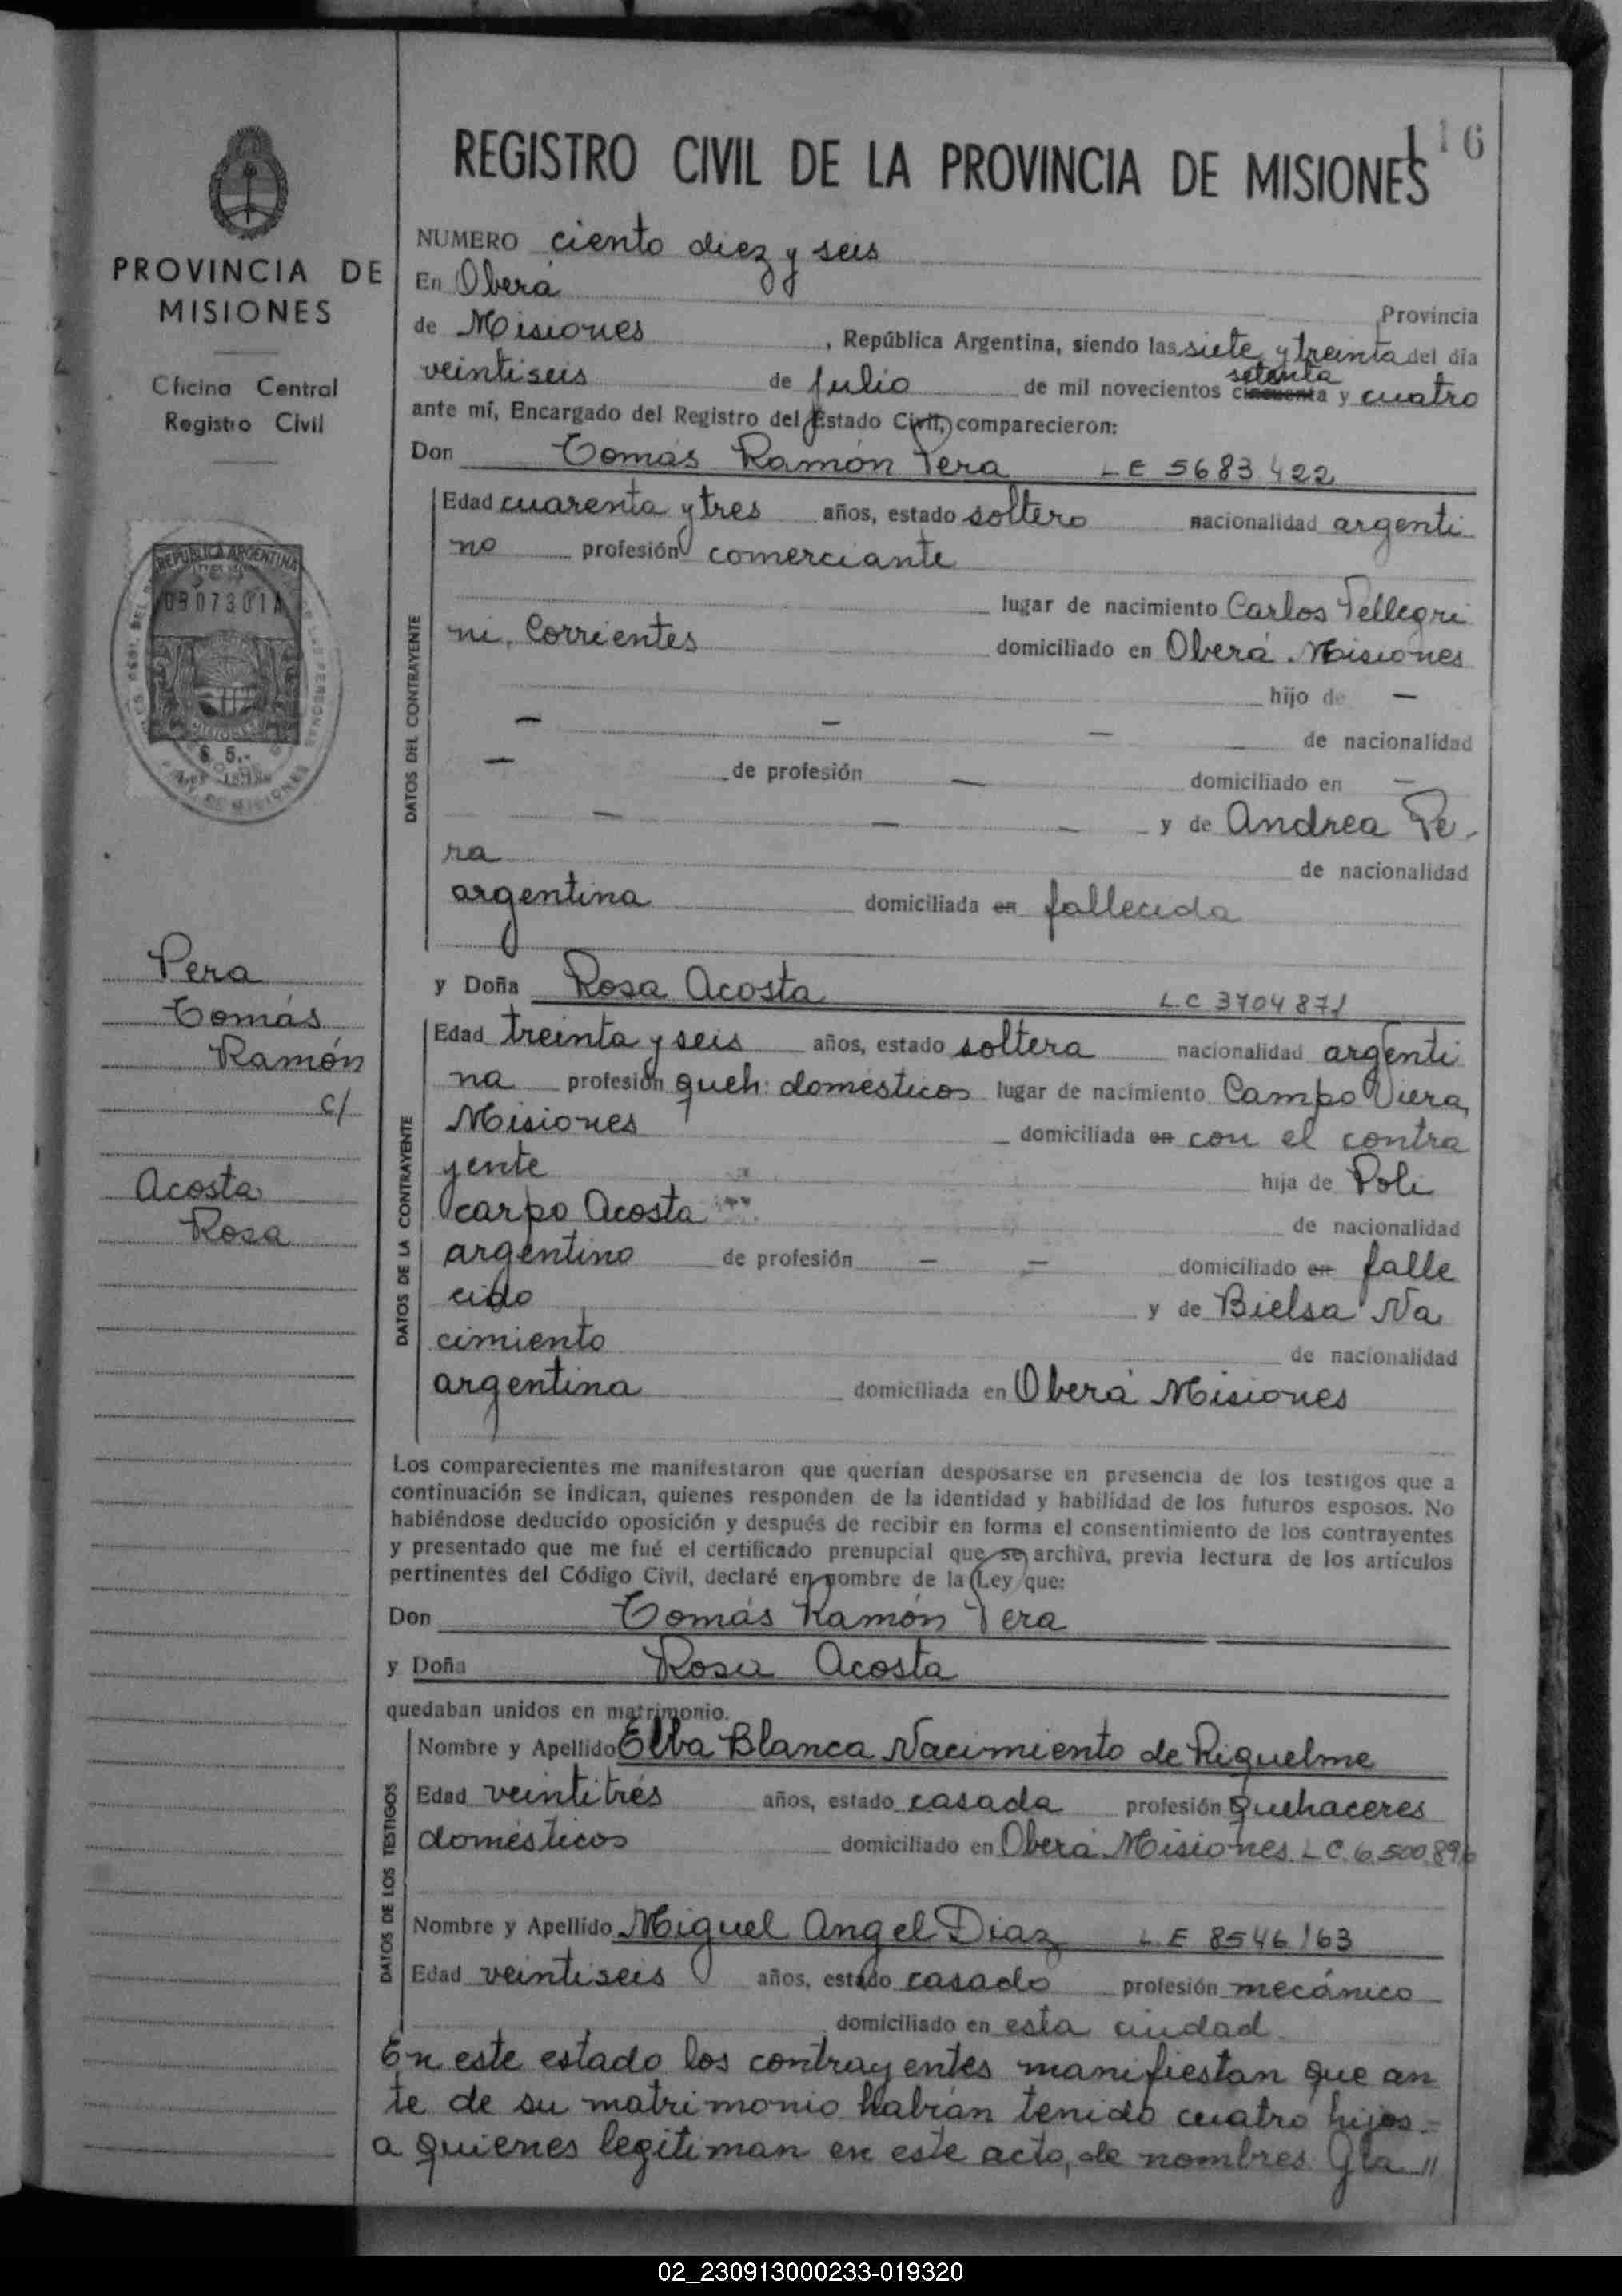 116
REGISTRO CIVIL DE LA PROVINCIA DE MISIONES
PROVINCIA DE
MISIONES
Oficina Central
Registro Civil
REPUBLICA ARGENTINA
0907301A
MISIONES
$ 5.-
Pera
Tomás
Ramón
c/
Acosta
Rosa
NUMERO ciento diez y seis
En Oberá Provincia
de Misiones, República Argentina, siendo las siete y treinta del día
veintiseis de julio de mil novecientos cincuenta setenta y cuatro
ante mí, Encargado del Registro del Estado Civil, comparecieron:
Don Tomás Ramón Pera LE 5683422
DATOS DEL CONTRAYENTE
Edad cuarenta y tres años, estado soltero nacionalidad argenti
no profesión comerciante
lugar de nacimiento Carlos Pellegri
ni, Corrientes domiciliado en Oberá. Misiones
hijo de —
— — — de nacionalidad
— de profesión — domiciliado en —
— — — y de Andrea Pe-
ra de nacionalidad
argentina domiciliada en fallecida
y Doña Rosa Acosta L.C 3704871
DATOS DE LA CONTRAYENTE
Edad treinta y seis años, estado soltera nacionalidad argenti
na profesión queh: domésticos lugar de nacimiento Campo Viera,
Misiones domiciliada en con el contra
yente hija de Poli
carpo Acosta de nacionalidad
argentino de profesión — — domiciliado en falle
cido y de Bielsa Na
cimiento de nacionalidad
argentina domiciliada en Oberá Misiones
Los comparecientes me manifestaron que querían desposarse en presencia de los testigos que a
continuación se indican, quienes responden de la identidad y habilidad de los futuros esposos. No
habiéndose deducido oposición y después de recibir en forma el consentimiento de los contrayentes
y presentado que me fué el certificado prenupcial que se archiva, previa lectura de los artículos
pertinentes del Código Civil, declaré en nombre de la Ley que:
Don Tomás Ramón Pera
y Doña Rosa Acosta
quedaban unidos en matrimonio.
DATOS DE LOS TESTIGOS
Nombre y Apellido Elba Blanca Nacimiento de Riquelme
Edad veintitrés años, estado casada profesión quehaceres
domésticos domiciliado en Oberá Misiones L C. 6.500.896
Nombre y Apellido Miguel Angel Diaz L.E 8546163
Edad veintiseis años, estado casado profesión mecánico
domiciliado en esta ciudad.
En este estado los contrayentes manifiestan que an
te de su matrimonio habían tenido cuatro hijos-
a quienes legitiman en este acto, de nombres Gla //
02_230913000233-019320